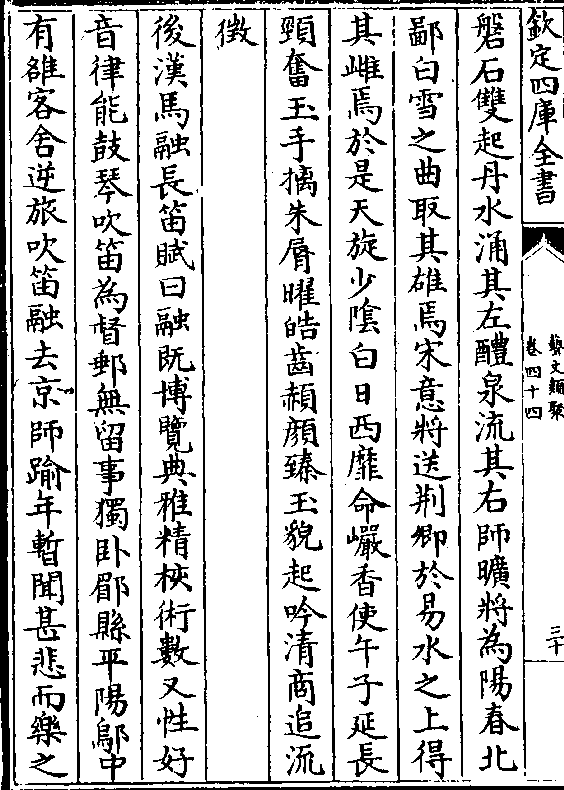 欽定四庫全書
藝文類聚
卷四十四
三十
磐石雙起丹水涌其左醴泉流其右師曠將為陽春北
鄙白雪之曲取其雄焉宋意將送荆卿於易水之上得
其雌焉於是天旋少陰白日西靡命嚴香使午子延長
頸奮玉手摛朱脣曜皓齒赬顔臻玉貌起吟清商追流
徴
後漢馬融長笛賦曰融既博覽典雅精核術數又性好
音律能鼓琴吹笛為督郵無留事獨卧郿縣平陽鄔中
有雒客舍逆旅吹笛融去京師踰年暫聞甚悲而樂之